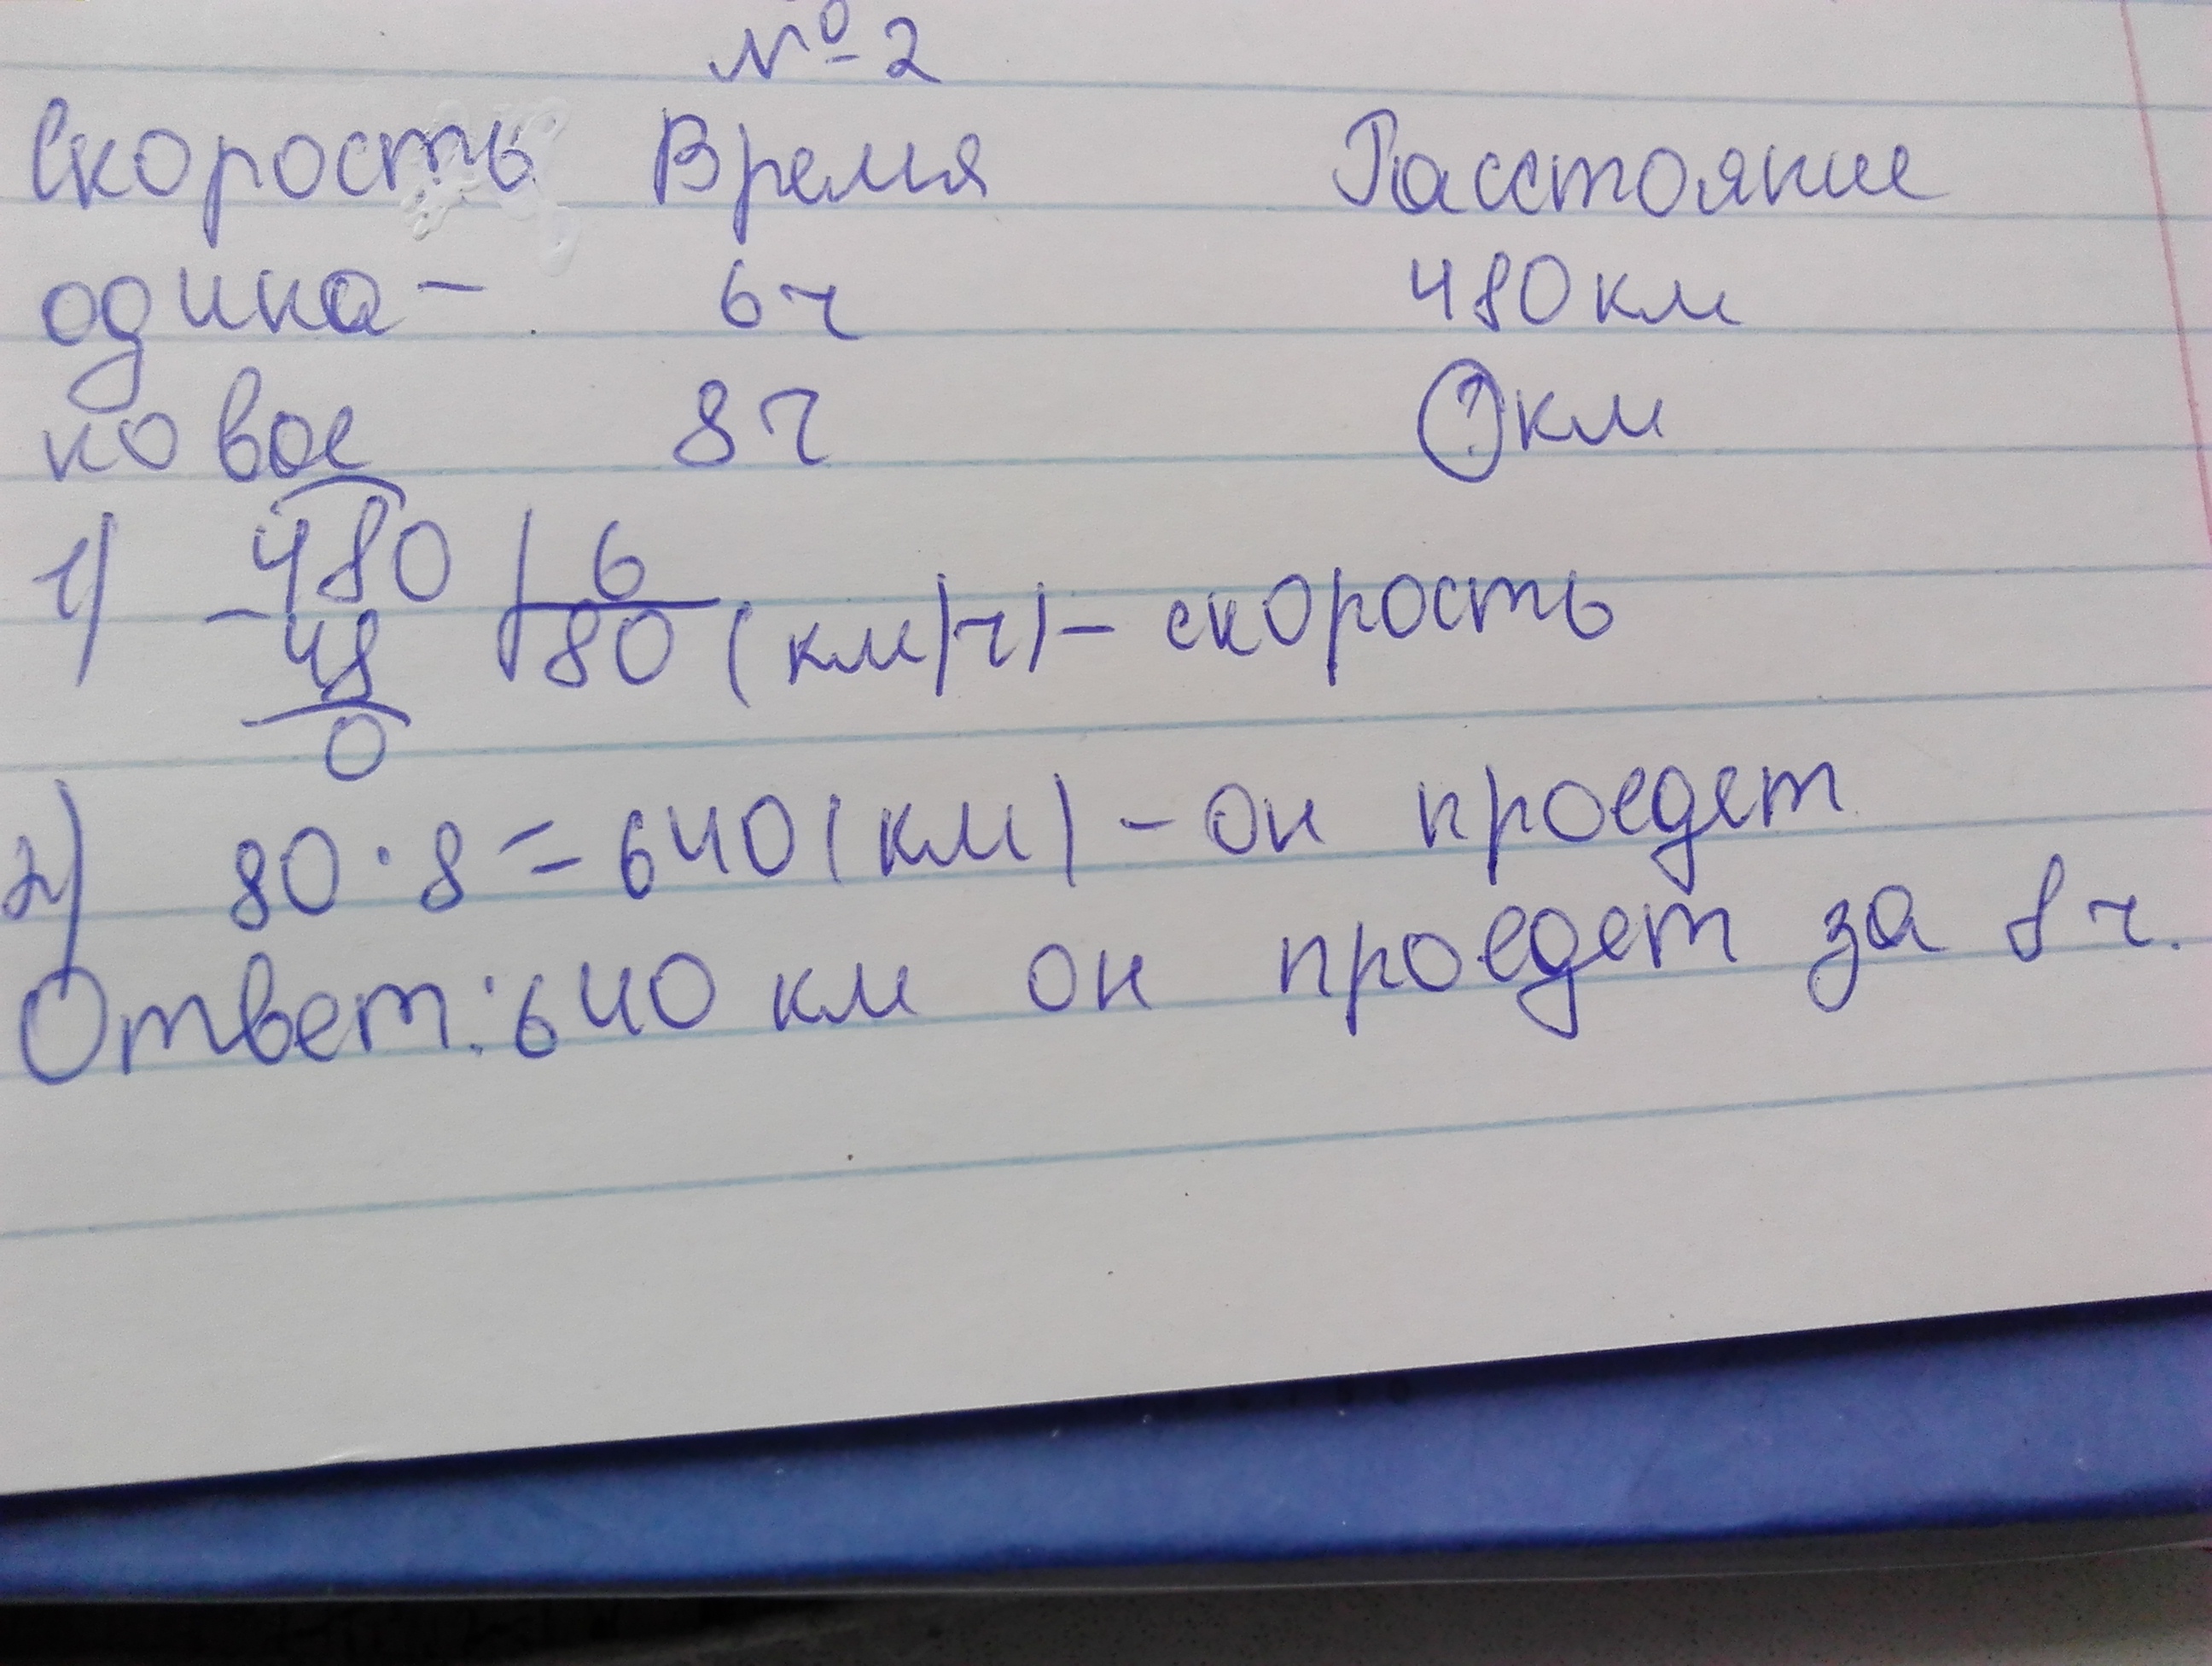 №2
Скорость Время Расстояние
одина- 6ч 480км
ковое 8ч ?км
1) 480 | 6
- 48 80 (км/ч) - скорость
0
2) 80 · 8 = 640 (км) - он проедет
Ответ: 640 км он проедет за 8 ч.